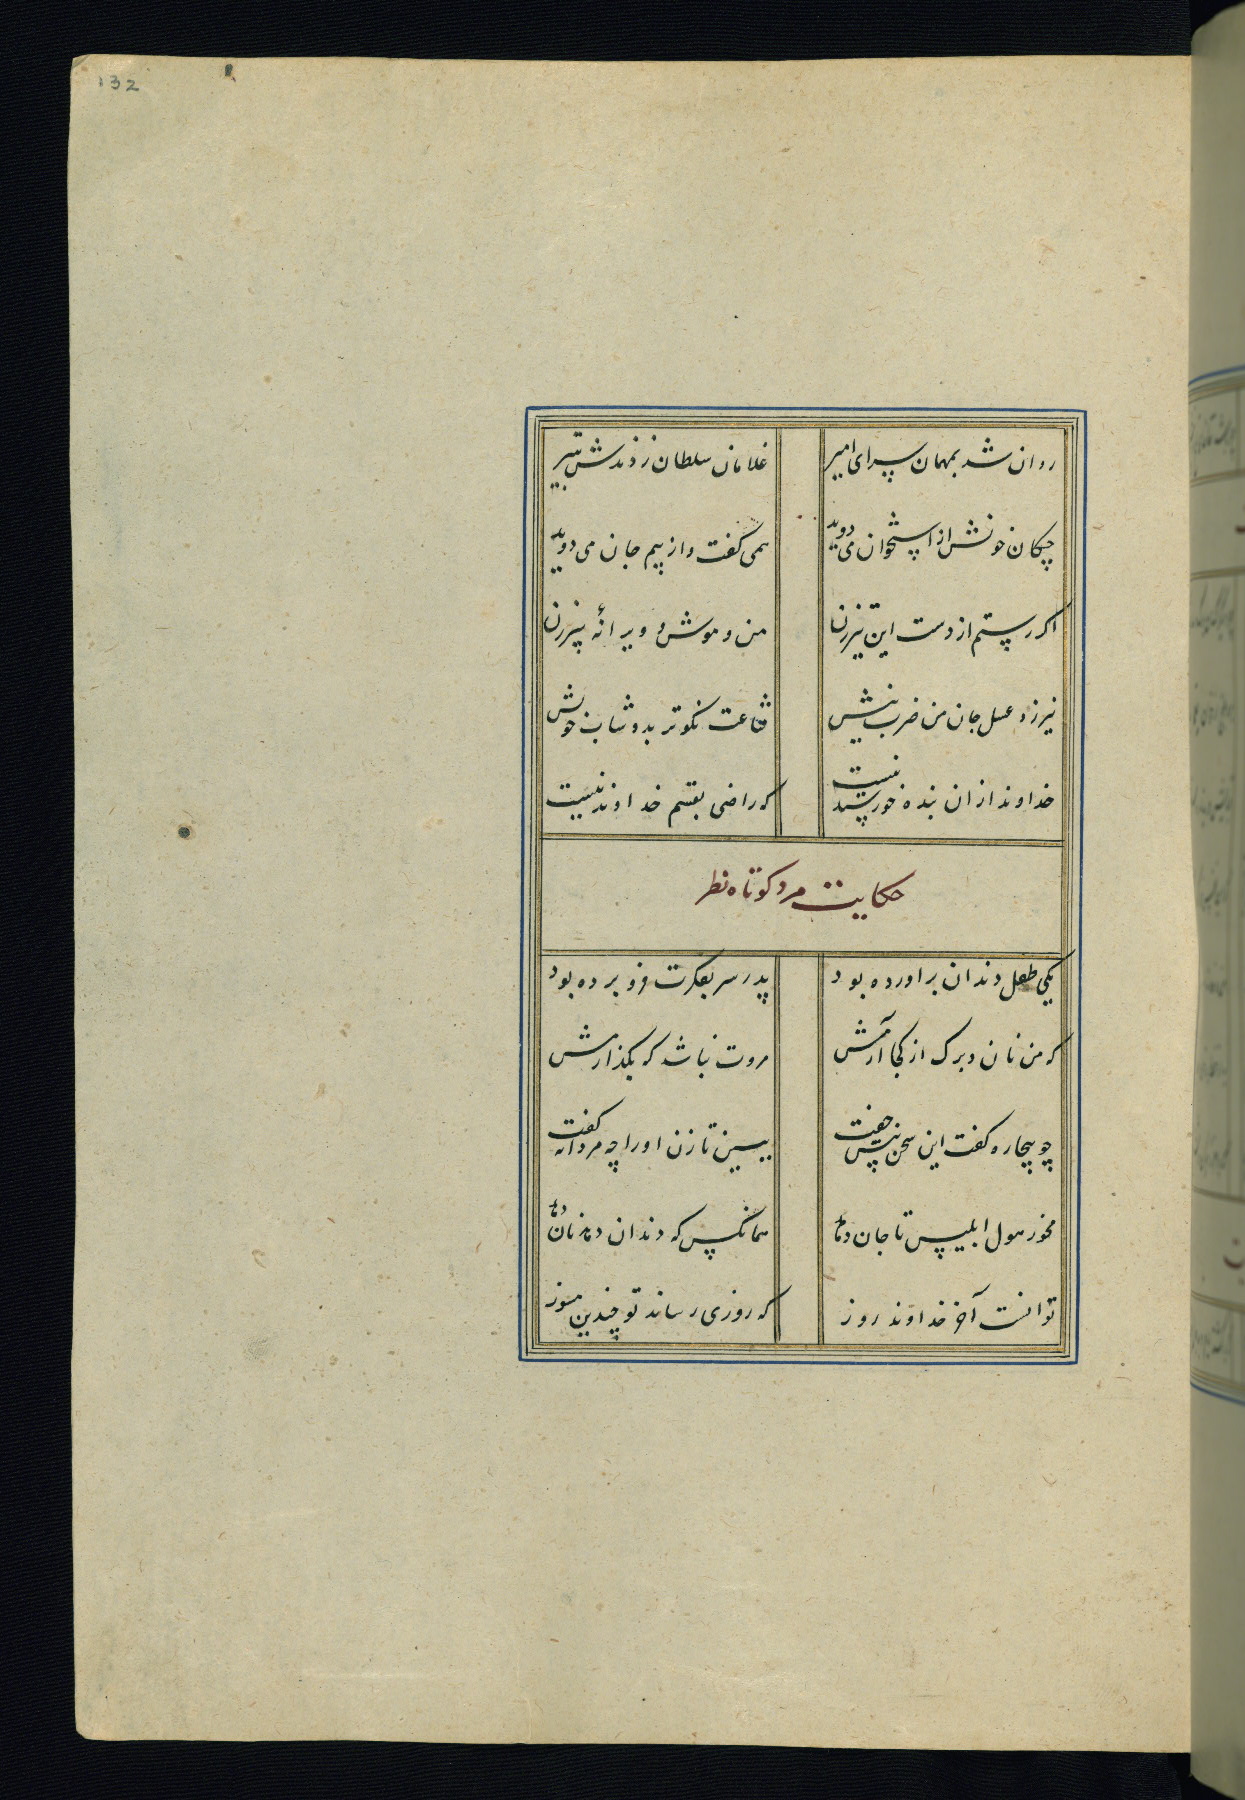 132
روان شد بمهمان سرای امیر
غلامان سلطان زدندش بتیر
چکان خونش از استخوان می دوید
همی گفت و از بیم جان می دوید
اگر رستم از دست این تیرزن
من و موش و ویرانهٔ پیرزن
نیرزد عسل جان من ضرب نیش
قناعت نکوتر بدوشاب خویش
خداوند ازان بنده خورسند نیست
که راضی بقسم خداوند نیست
حکایت مرد کوتاه نظر
یکی طفل دندان براورده بود
پدر سر بفکرت فرو برده بود
که من نان و برک از کجا آرمش
مروت نباشد که بکذارمش
چو بیچاره گفت این سخن پیش جفت
ببین تا زن اورا چه مردانه گفت
مخور هول ابلیس تا جان دهد
همانکس که دندان دهد نان دهد
تواناست آخر خداوند روز
که روزی رساند تو چندین مسوز